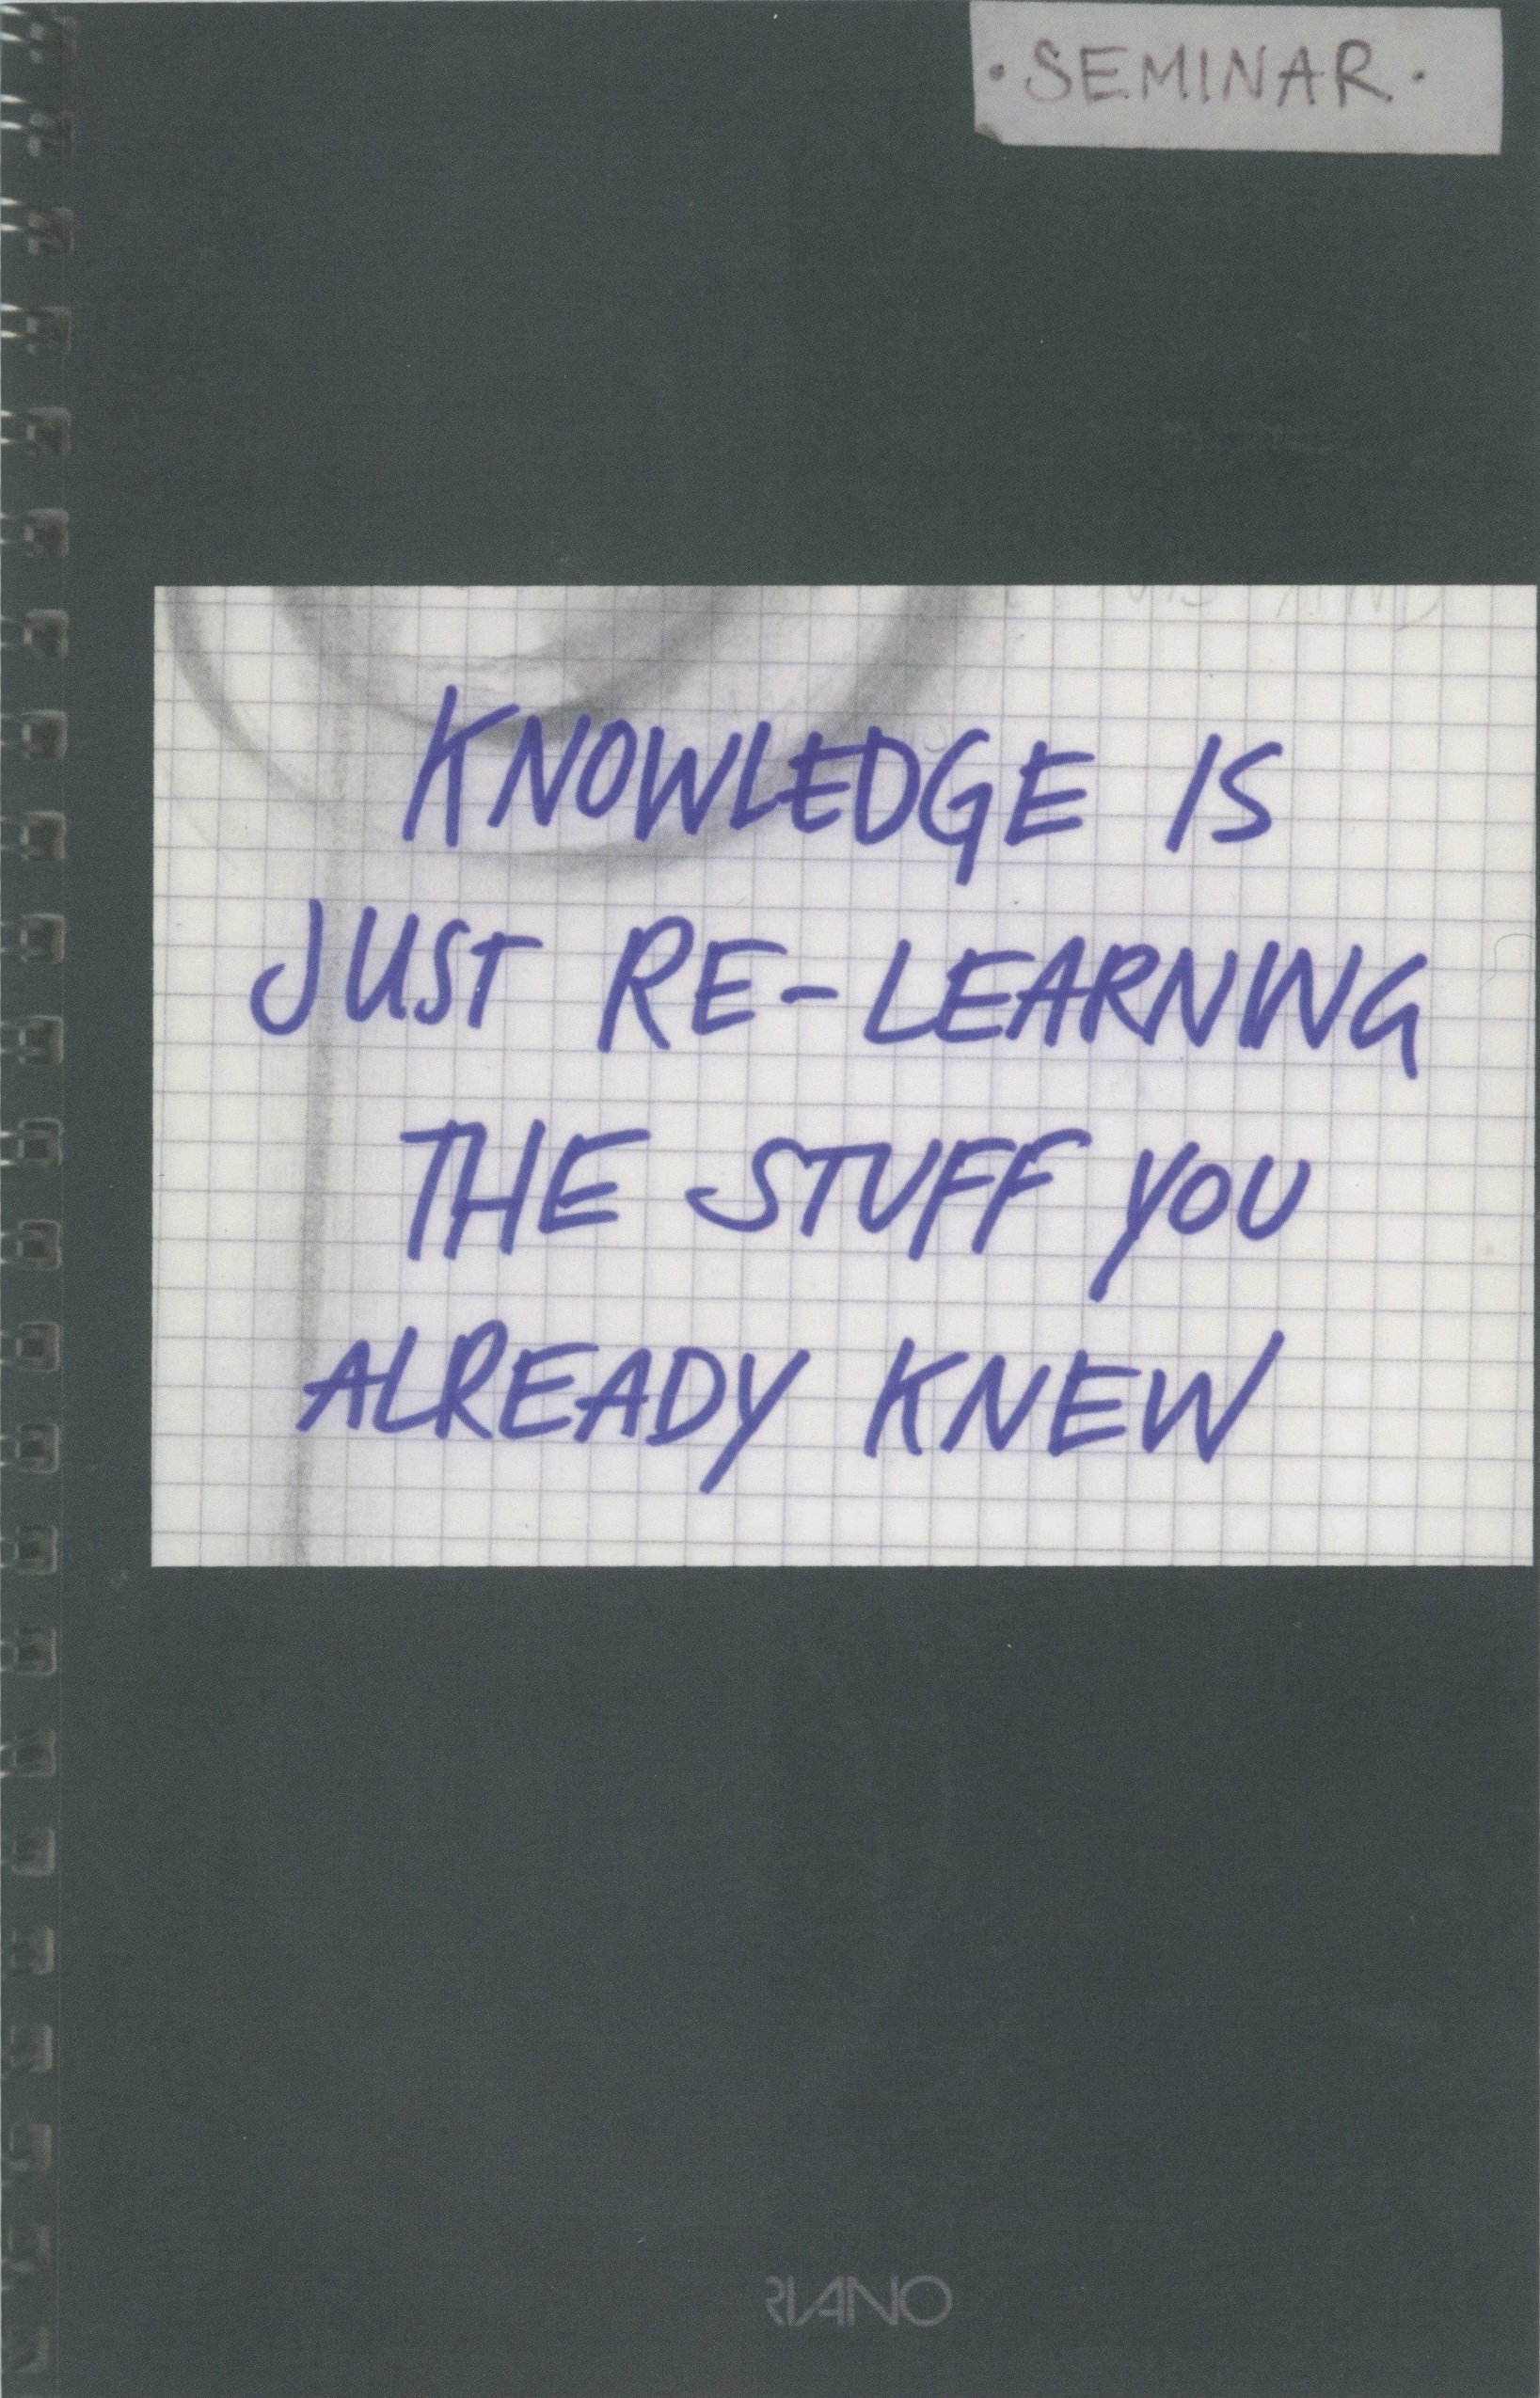 · SEMINAR ·
KNOWLEDGE IS
JUST RE-LEARNING
THE STUFF YOU
ALREADY KNEW
RIANO